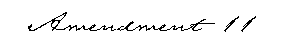 Amendment 11